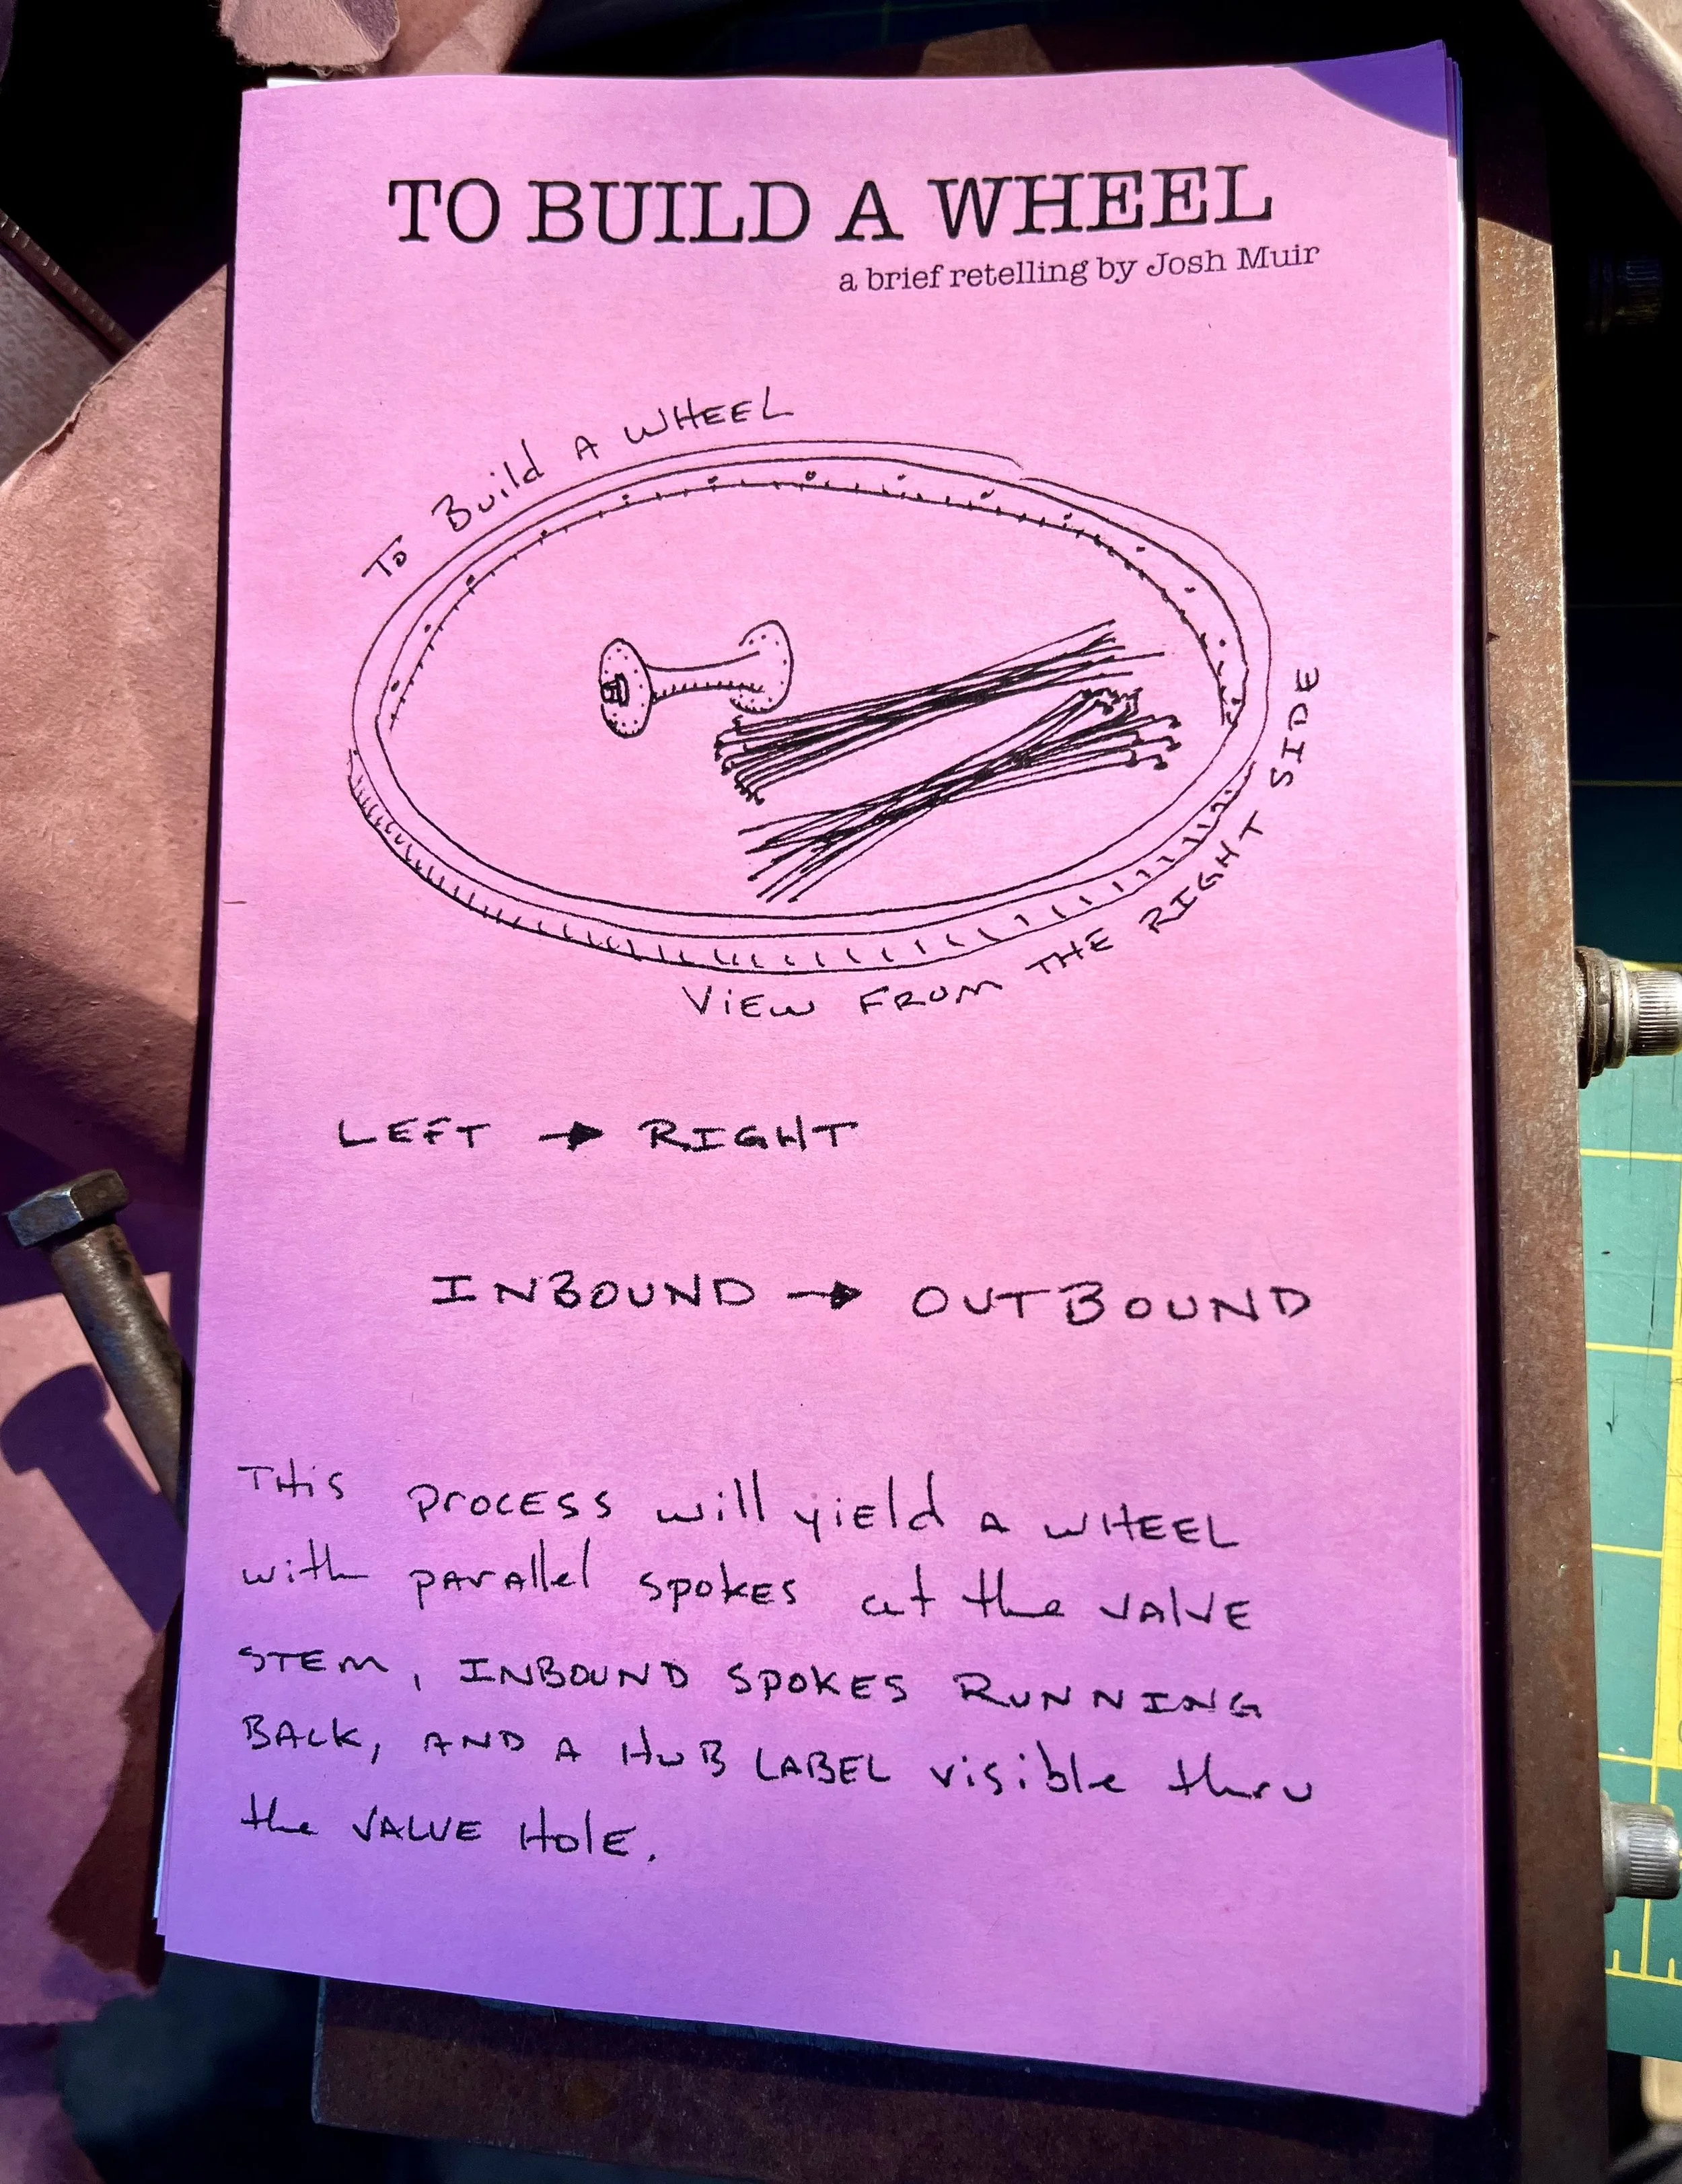 TO BUILD A WHEEL
a brief retelling by Josh Muir
To Build A WHEEL
VIEW FROM THE RIGHT SIDE
LEFT → RIGHT
INBOUND → OUTBOUND
THis process will yield A WHEEL
with parallel spokes at the VALVE
STEM, INBOUND SPOKES RUNNING
BACK, AND A HUB LABEL visible thru
the VALVE HolE.